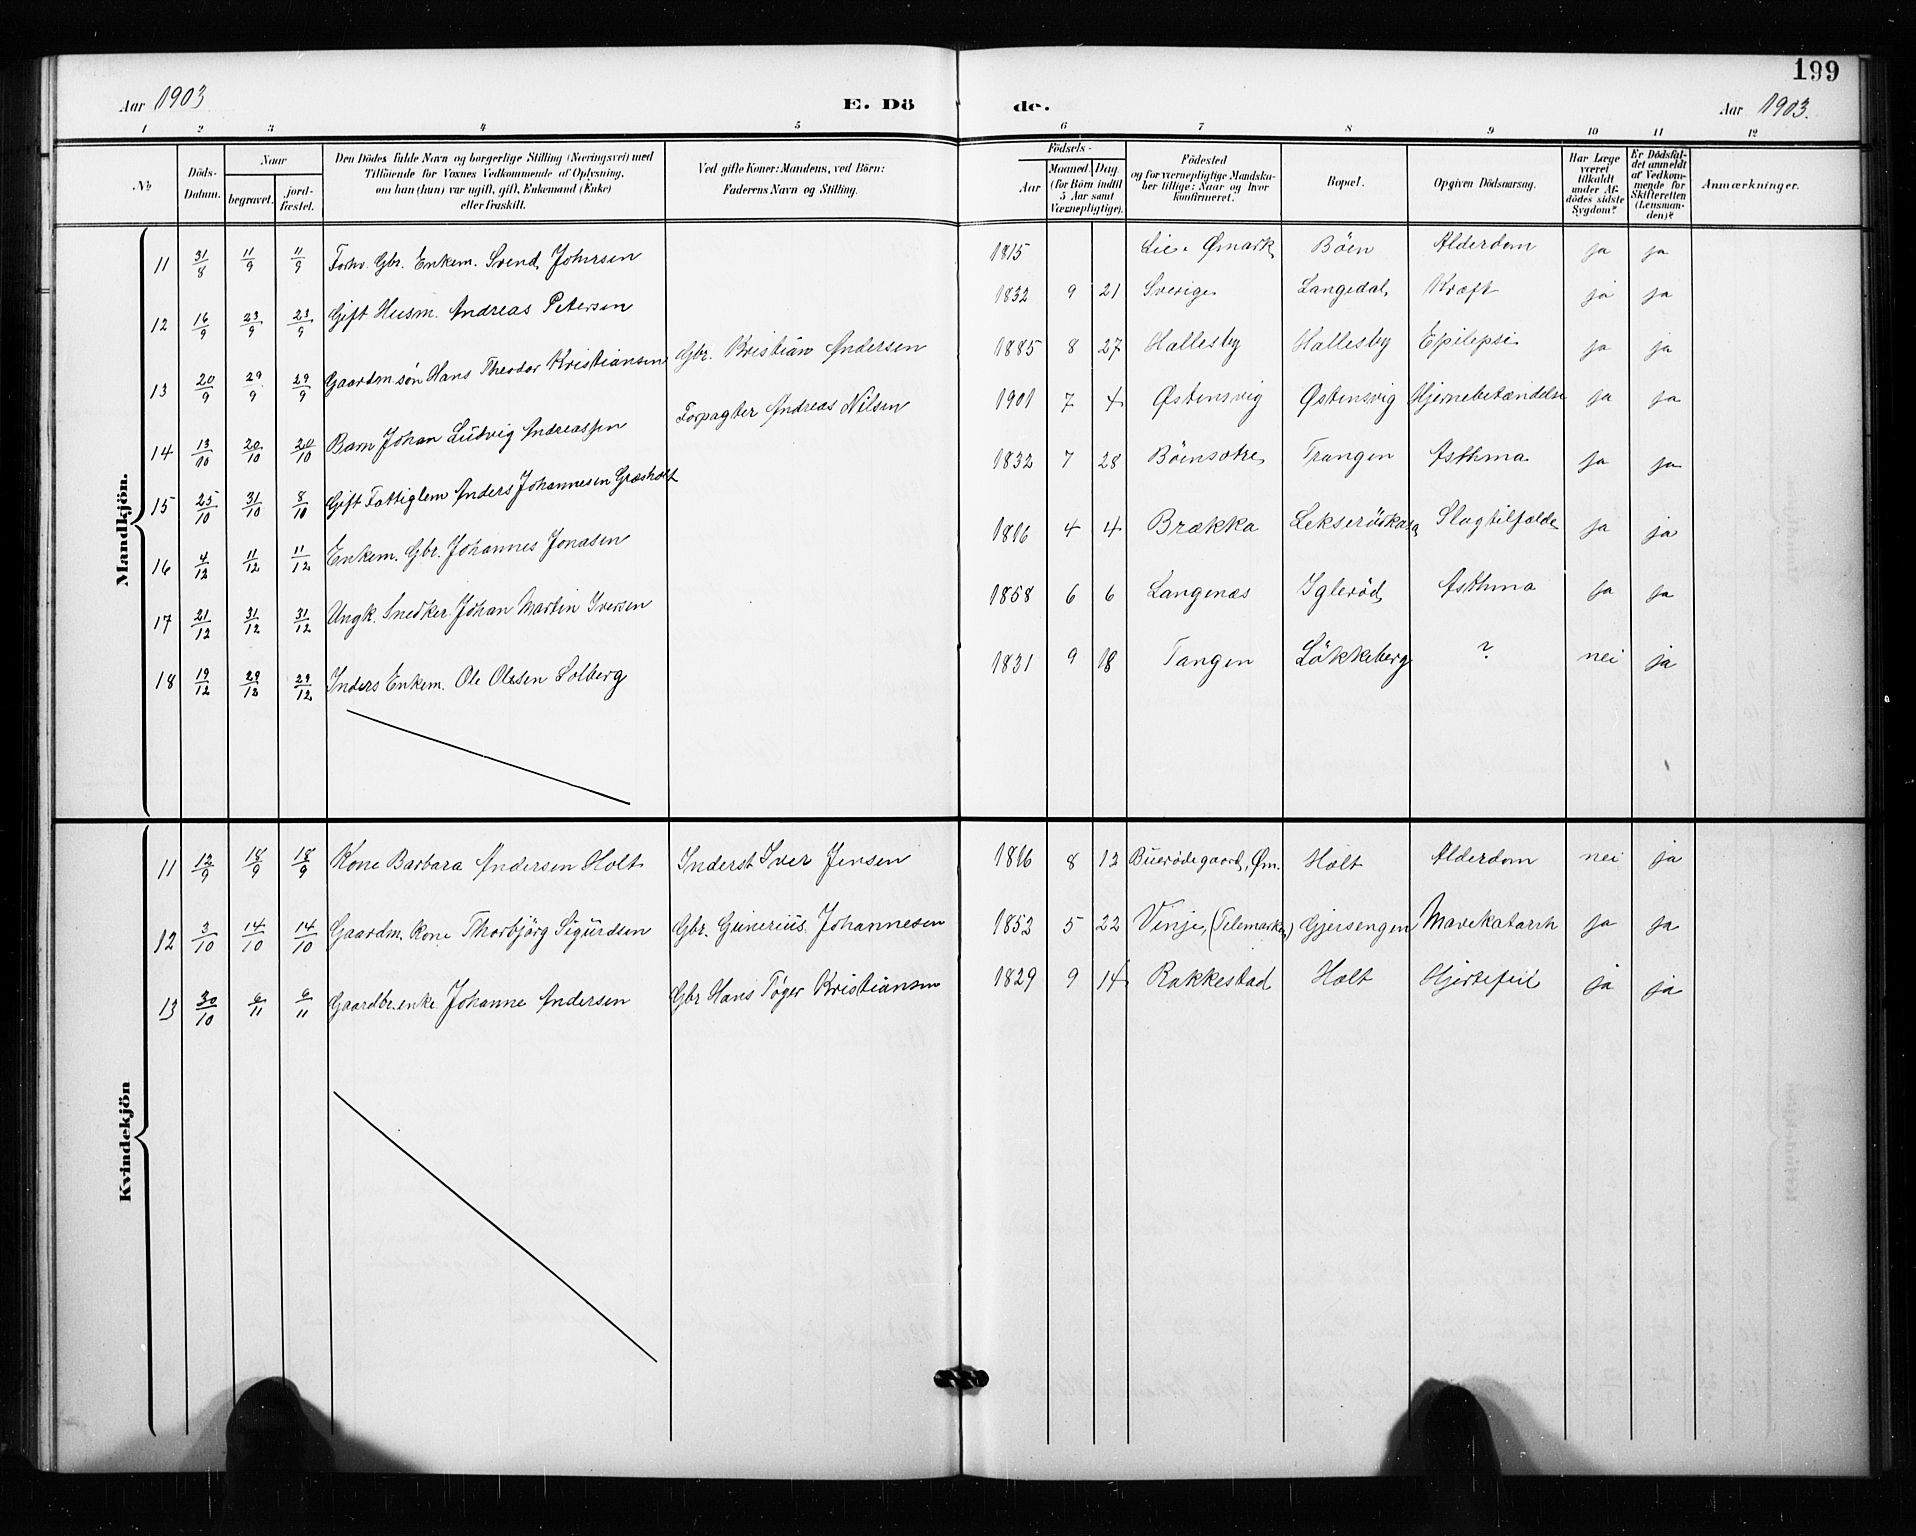 199
Aar 1903 E. Dö de. Aar 1903.
1 2 3 4 5 6 7 8 9 10 11 12
No
Döds-Datum.
Naar
begravet.
jord-fæstet.
Den Dödes fulde Navn og borgerlige Stilling (Næringsvei) med
Tilföiende for Voxnes Vedkommende af Oplysning,
om han (hun) var ugift, gift, Enkemand (Enke)
eller fraskilt.
Ved gifte Koner: Mandens, ved Börn:
Faderens Navn og Stilling.
Födsels-
Aar
Maaned. Dag.
(for Börn indtil
5 Aar samt
Værnepligtige).
Födested
og for værnepligtige Mandsku-
ber tillige: Naar og hvor
konfirmeret.
Bopæl.
Opgiven Dödsaarsag.
Har Læge
været
tilkaldt
under Af-
dödes sidste
Sygdom?
Er Dödsfal-
det anmeldt
af Vedkom-
mende for
Skifteretten
(Lensman-
den)?
Anmærkninger.
Mandkjön.
11 31/8 11/9 11/9 Forhv. Gbr. Enkem. Svend Johnsen 1815 Lie, Ømark Böen Alderdom ja ja
12 16/9 23/9 23/9 Gift Husm. Andreas Petersen 1832 9 21 Sverige Langedal Kræft ja ja
13 20/9 29/9 29/9 Gaardm.søn Hans Theodor Kristiansen Gbr. Kristian Andersen 1885 8 27 Hallesby Hallesby Epilepsi ja ja
14 13/10 20/10 20/10 Barn Johan Ludvig Andreassen Forpagter Andreas Nilsen 1901 7 4 Østensvig Østensvig Hjernebetændelse ja ja
15 25/10 31/10 8/10 Gift Fattiglem Anders Johannesen Græsholt 1832 7 28 Trangen Asthma ja ja
16 4/12 11/12 11/12 Enkem. Gbr. Johannes Jonasen 1816 4 4 Brække Slagtilfælde ja ja
17 21/12 31/12 31/12 Ungk. Snedker Johan Martin Iversen 1858 6 6 Langenæs Iglerød Asthma ja ja
18 19/12 29/12 29/12 Inders Enkem. Ole Olsen Solberg 1831 9 18 Tangen Løkkeberg ? nei ja
Kvindekjön
11 12/9 18/9 18/9 Kone Barbara Andersen Holt Inderst Iver Jensen 1816 8 12 Buerødegaard, Øm. Holt Alderdom nei ja
12 3/10 14/10 14/10 Gaardm. Kone Thorbjörg Sigurdsen Gbr. Gunerius Johannesen 1853 5 22 Vinje, (Telemarken) Gjersengen Mavekatarrh ja ja
13 30/10 6/11 6/11 Gaardbr.enke Johanne Andersen Gbr Hans Töger Kristiansen 1829 9 14 Rakkestad Holt Hjertefeil ja ja